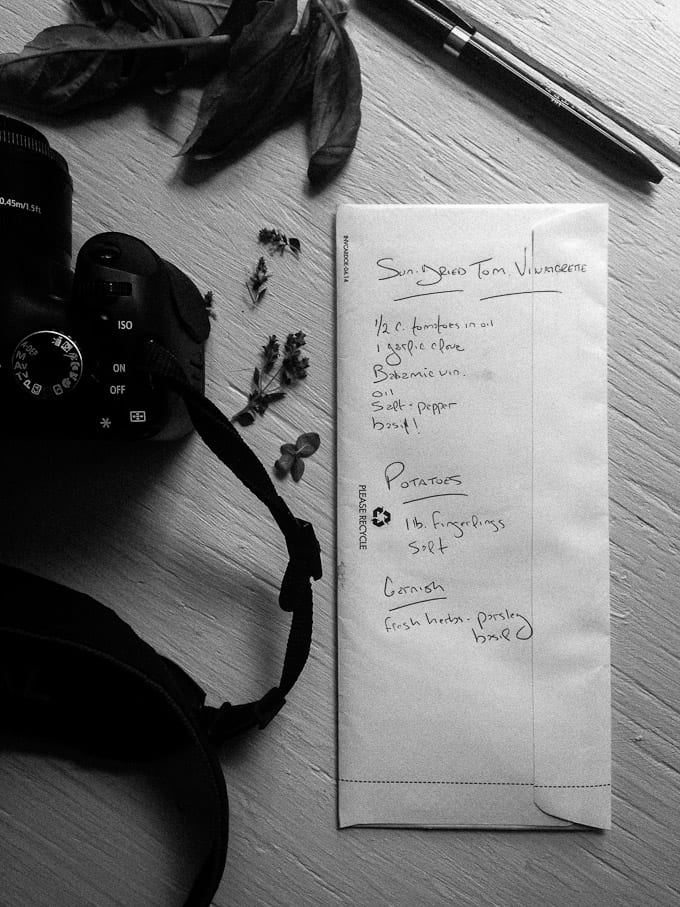 0.45m/1.5ft
ISO
ON
OFF
A-DEP
M
Av
Tv
P
INVCARDOE-04.14
Sun-Dried Tom. Vinaigrette
1/2 c. tomatoes in oil
1 garlic clove
Balsamic vin.
oil
Salt - pepper
basil!
Potatoes
1 lb. fingerlings
salt
PLEASE RECYCLE
Garnish
fresh herbs - parsley
basil